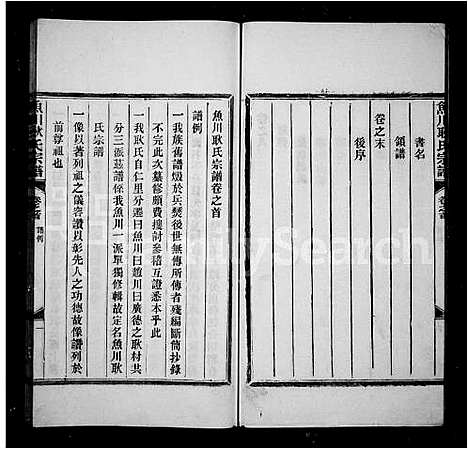 魚川耿氏宗譜
書名
領譜
卷之末
後序
魚川耿氏宗譜卷之首
譜例
一我族舊譜燬於兵燹後世無傳所傳者殘編斷簡抄錄
不完此次纂修頗費搜討參稽互證悉本乎此
一我耿氏自仁里分遷曰魚川曰趙川曰廣德之耿村共
分三派茲譜係我魚川一派單獨修輯故定名魚川耿
氏宗譜
一像以著列祖之儀容讚以彰先人之功德故像讚列於
前尊祖也
魚川耿氏宗譜
卷之首
譜例